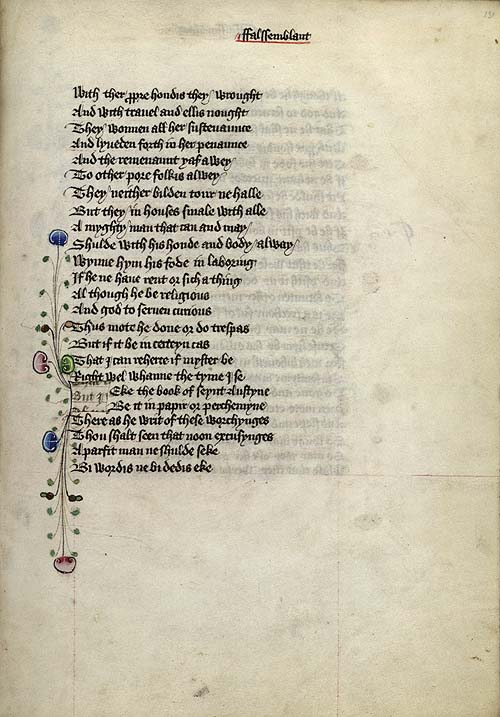 ffalssemblant
With ther ꝓpre hondis they wrought
And with travel and ellis nought
They wonnen all her sustenaunce
And lyueden forth in her penaunce
And the remenaunt yaf awey
To other pore folkis alwey
They neither bilden tour ne halle
But they in houses smale with alle
A myghty man that can and may
Shulde with his honde and body alway
Wynne hym his fode in laboring
If he ne haue rent or sich a thing
Al though he be religious
And god to seruen curious
Thus mote he done or do trespas
But if it be in certeyn cas
That I can reherce if myster be
Right wel whanne the tyme I se
But I
Eke the book of seynt Austyne
Be it in papir or perchemyne
There as he writ of these worchynges
Thou shalt seen that noon excusynges
A parfit man ne shulde seke
Bi wordis ne bi dedis eke